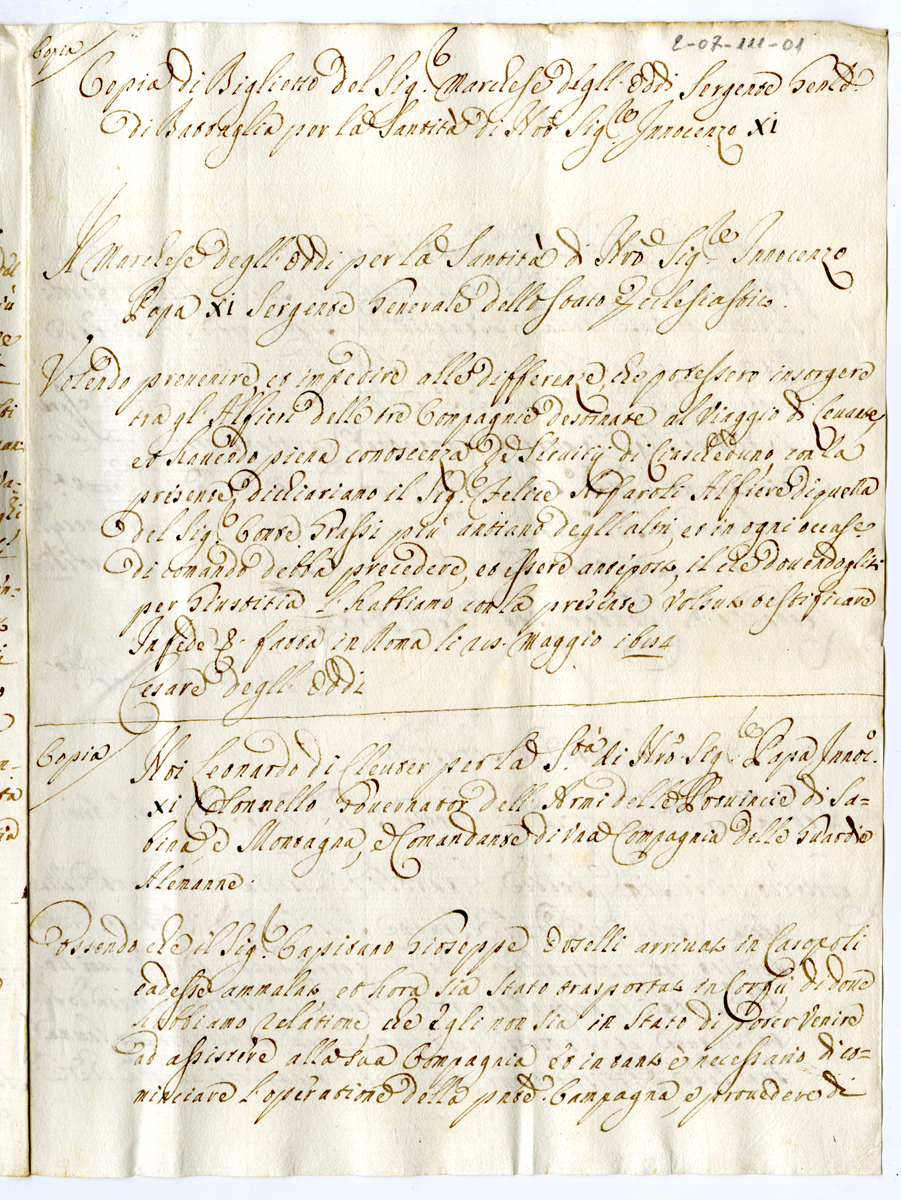 Copia
2-07-111-01
Copia di Biglietto del Sig.r Marchese degll' Oddi Sergente Gen.le
di Battaglia per la Santità di Nro Sig.re Innocenzo XI
Il Marchese degll' Oddi per la Santità di Nrō Sig.re Innocenzo
Papa XI Sergente Generale dello Stato Ecclesiastico.
Volendo prevenire, et impedire alle differenze, che potessero insorgere
tra gl' Alfieri delle tre Compagnie destinate al viaggio di Levante
et havendo piena conoscenza di ciascheduno con la
presente, dichiariamo il Sig.r Felice Alfiere di quella
del Sig.r Conte Grassi più antiano degll' altri, et in ogni occase
di comando debba precedere, et essere anteposto, il che dovendoglisi
per Giustitia l' habbiamo con la presente voluto testificare
In fede &. fatta in Roma li Maggio 1684
Cesare degll' Oddi
Copia
Noi Leonardo di Cleuter per la S.tà di Nrō Sig.re Papa Innoc.o
XI Colonnello, Governator dell' Armi delle Provincie di Sa-
bina, e Montagna, e Comandante di una Compagnia delle Guardie
Alemanne.
Essendo che il Sig.r Capitano Gioseppe Doselli arrivato in
cadesse ammalato, et hora sia stato trasportato in Corfù, di dove
habbiamo relatione che Egli non sia in stato di poter venire
ad assistere alla sua Compagnia et in tanto è necessario di co-
minciare l' operatione della pnte Campagna, e provedere di